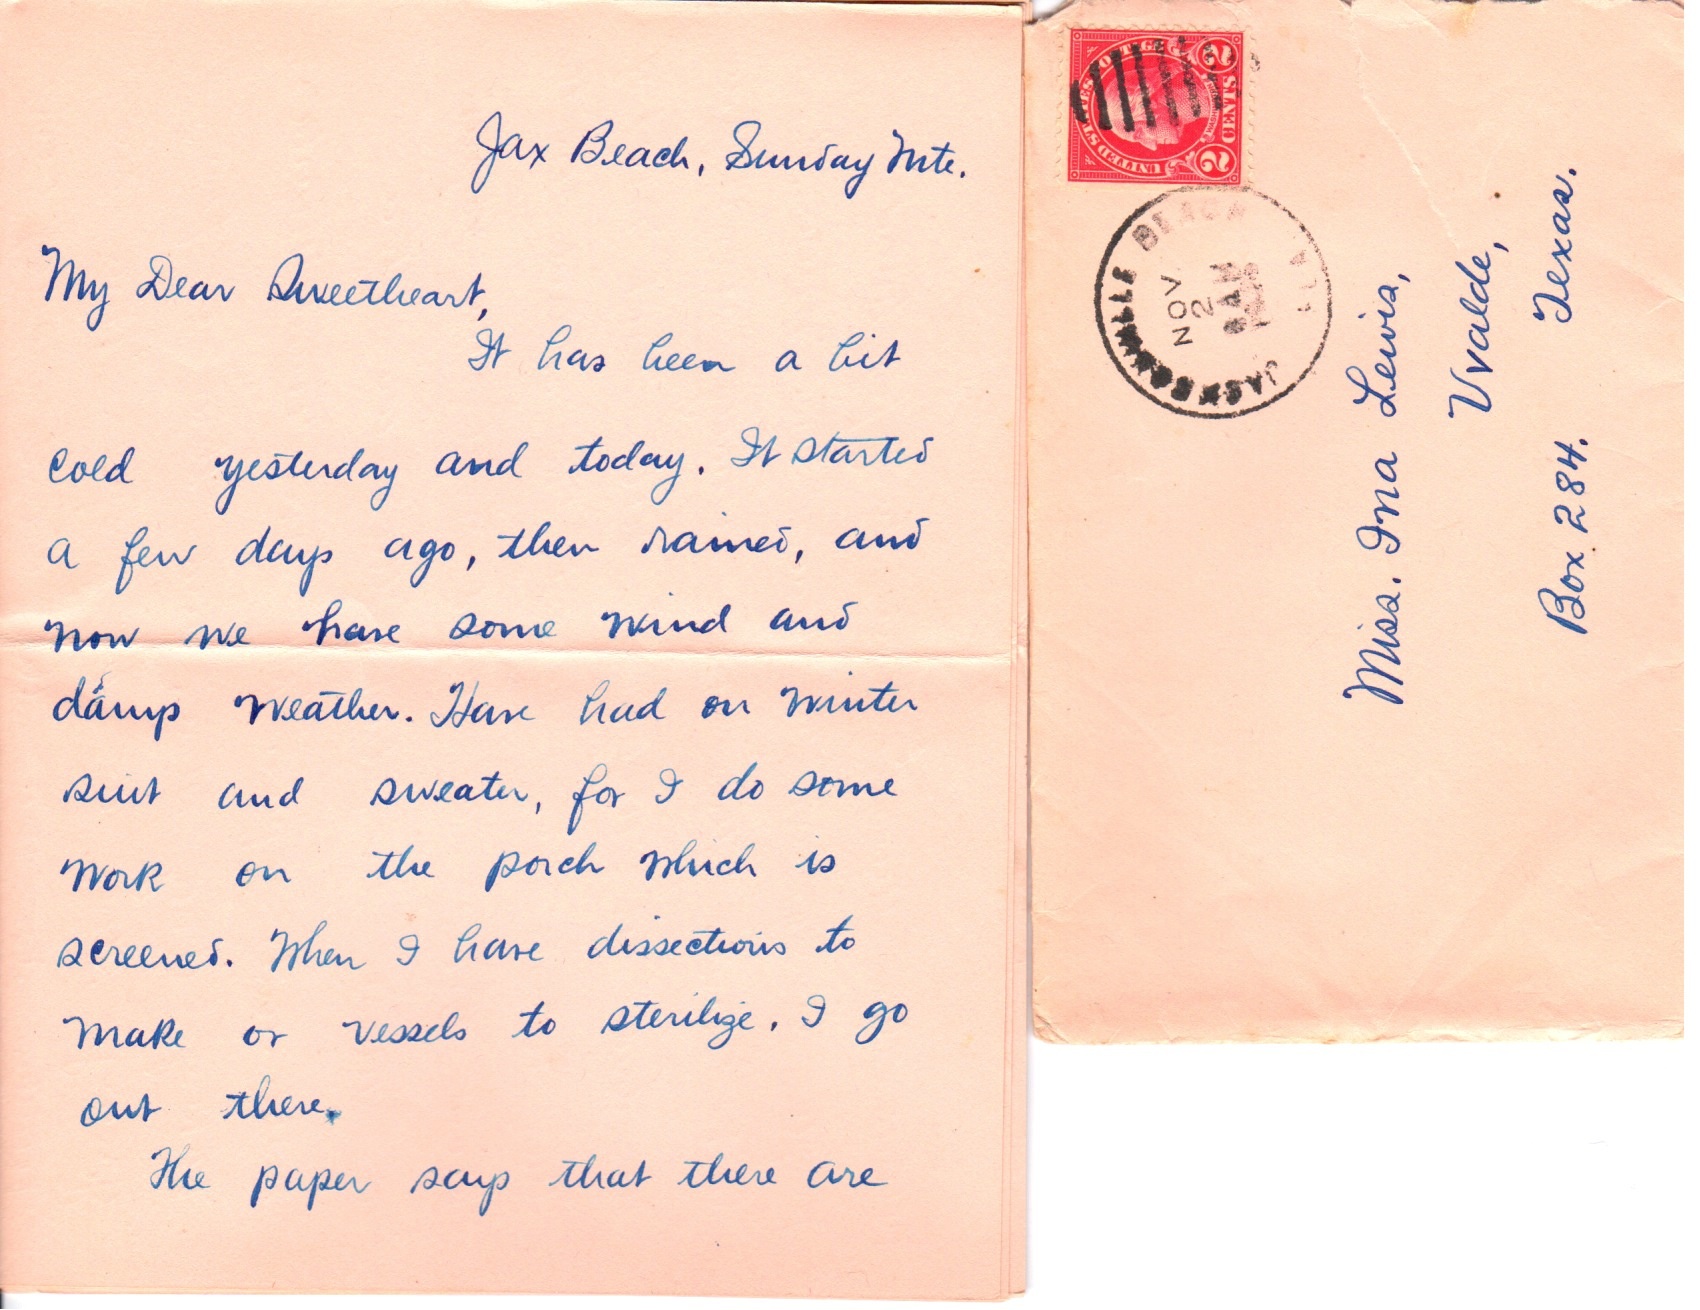 Jax Beach, Sunday Nite.
My Dear Sweetheart,
It has been a bit
cold yesterday and today. It started
a few days ago, then rained, and
now we have some wind and
damp weather. Have had on winter
suit and sweater, for I do some
work on the porch which is
screened. When I have dissections to
make or vessels to sterilize, I go
out there.
The paper says that there are
UNITED STATES POSTAGE
2 CENTS 2
JACKSONVILLE BEACH
FLA
NOV
2
8 AM
Miss. Ina Lewis,
Uvalde,
Box 284. Texas.